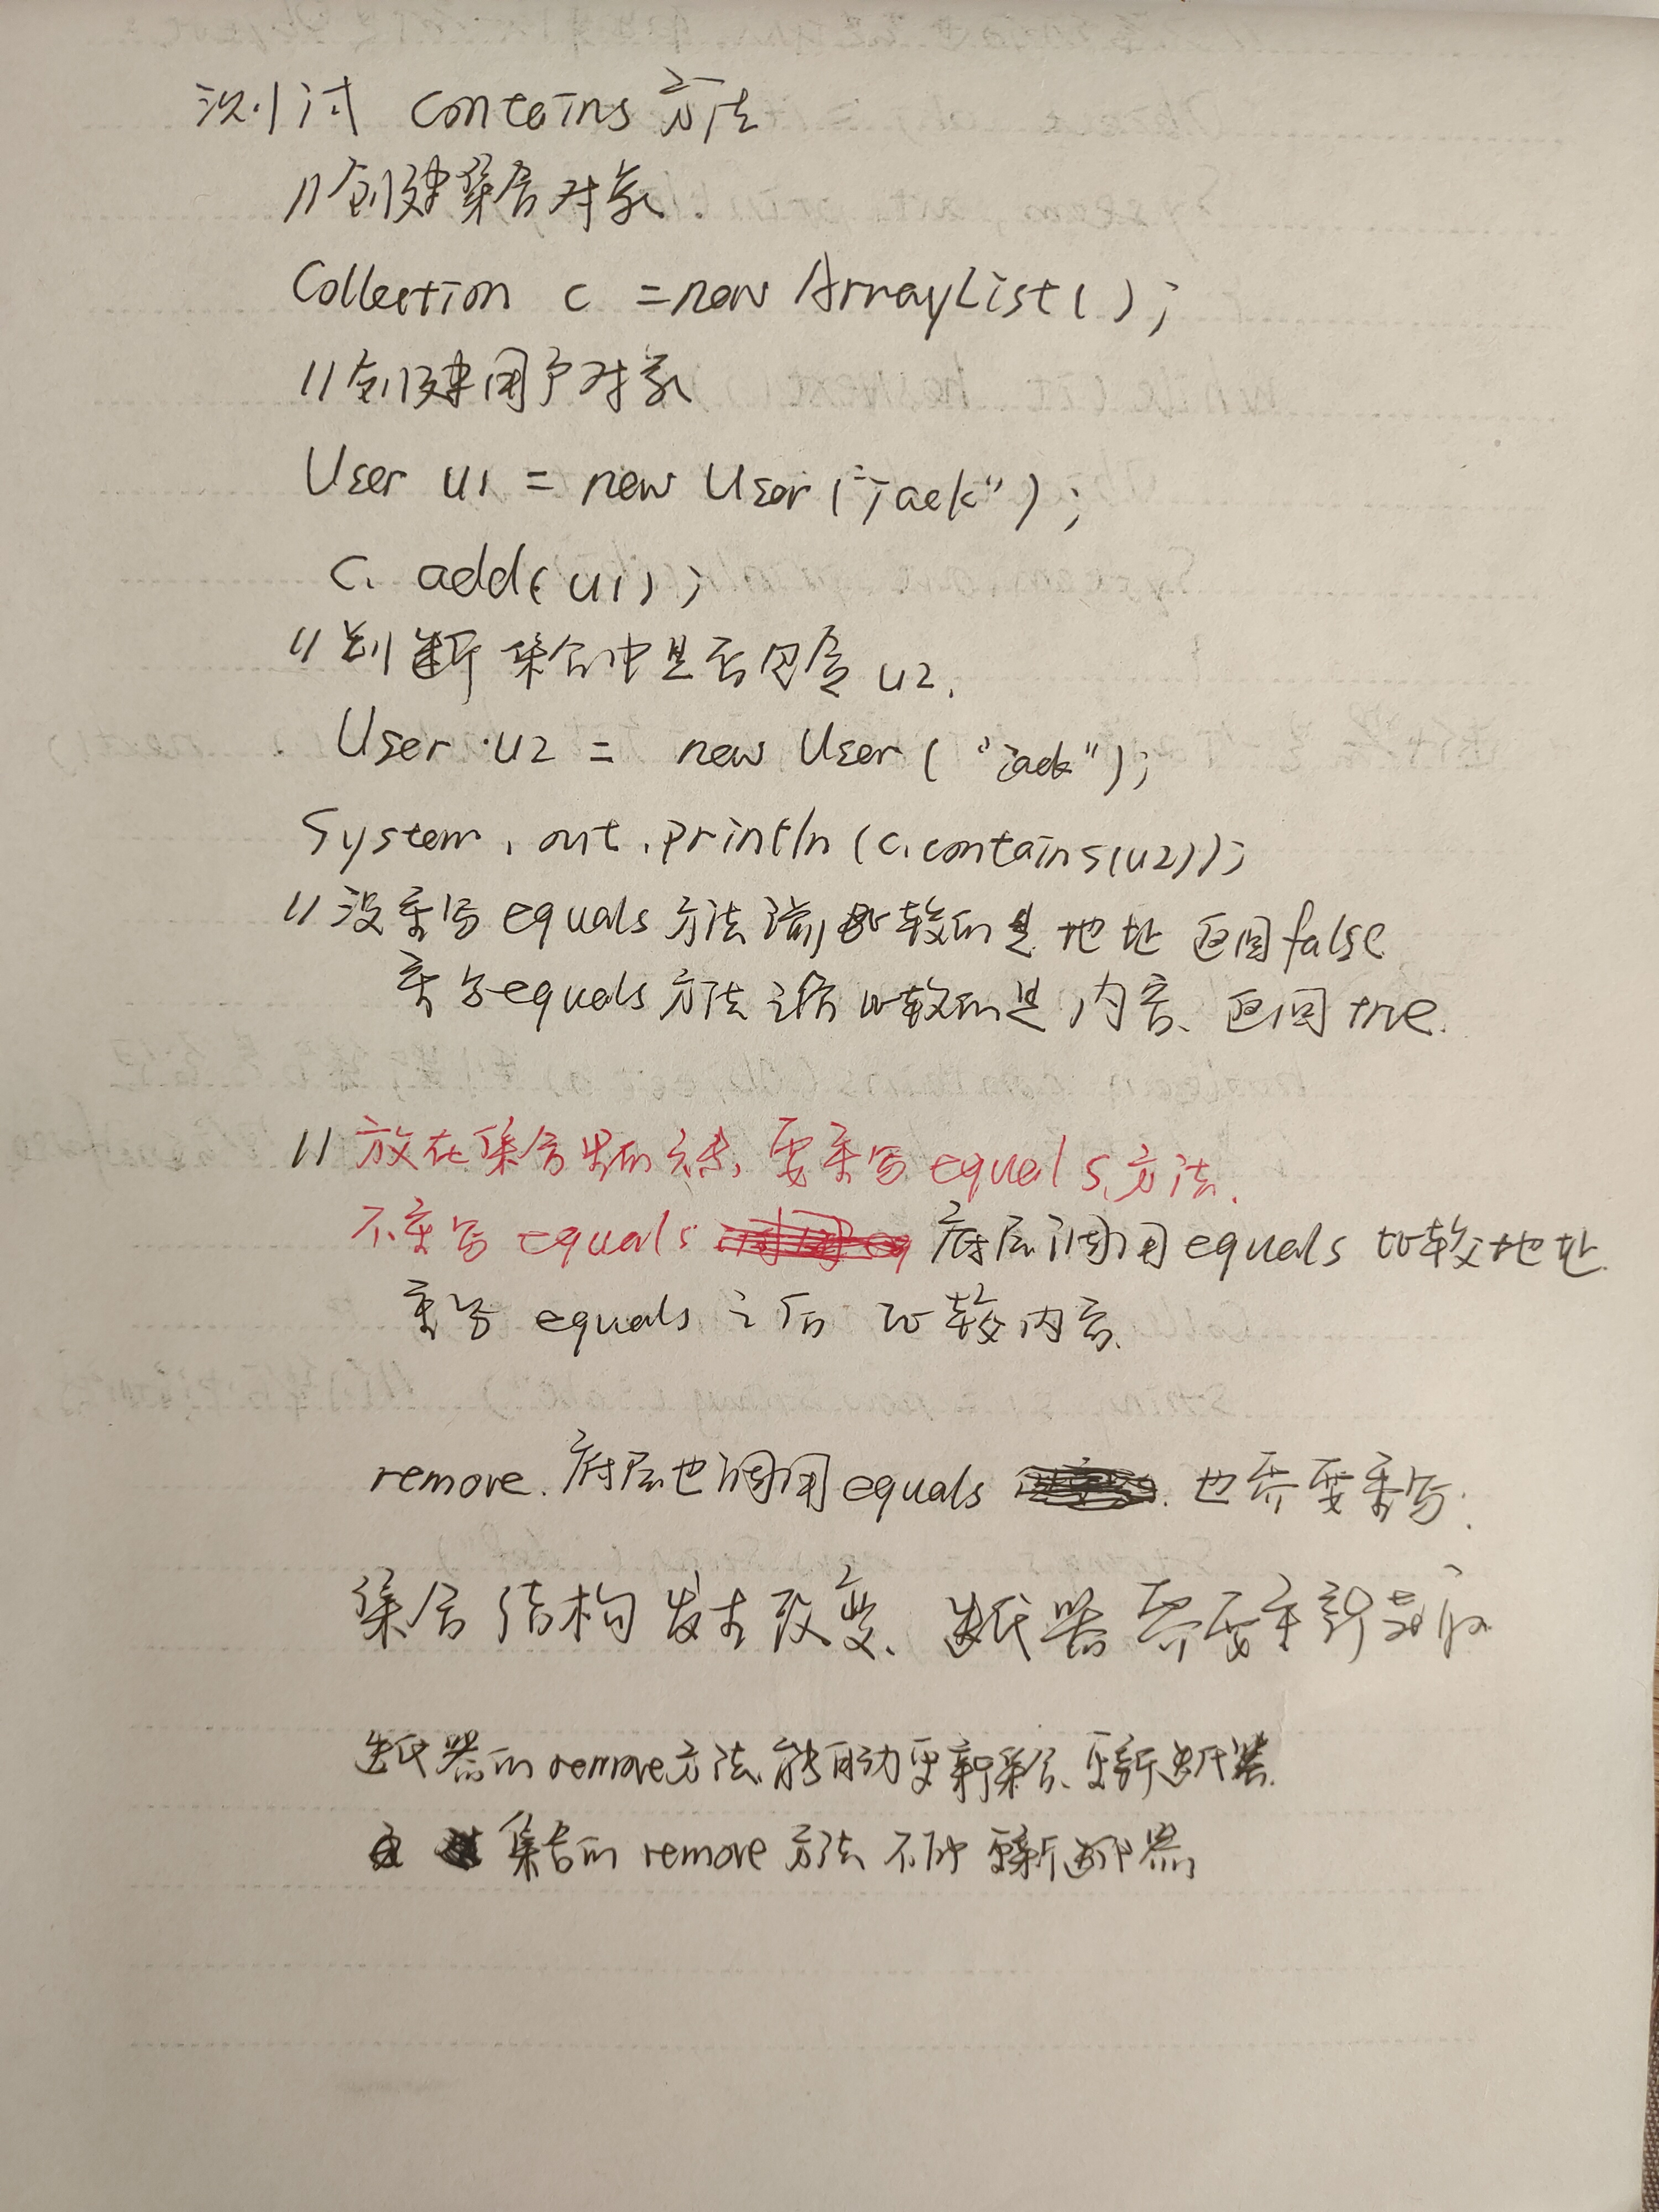 测讨 contains方法
//创建集合对象.
Collection c = new ArrayList();
//创建用户对象
User u1 = new User("jack");
c. add(u1);
//判断集合中是否包含u2.
User u2 = new User ("jack");
System.out.println(c.contains(u2));
//没重写equals方法前比较的是地址 返回false
重写equals方法之后比较的是内容、返回true.
//放在集合里的元素、要重写equals方法.
不重写equals 底层调用equals 比较地址.
重写equals之后 比较内容.
remove.底层也调用equals 也需要重写.
集合结构发生改变、迭代器需要重新获取
迭代器的remove方法、能自动更新集合、更新迭代器.
集合的remove方法 不能更新迭代器